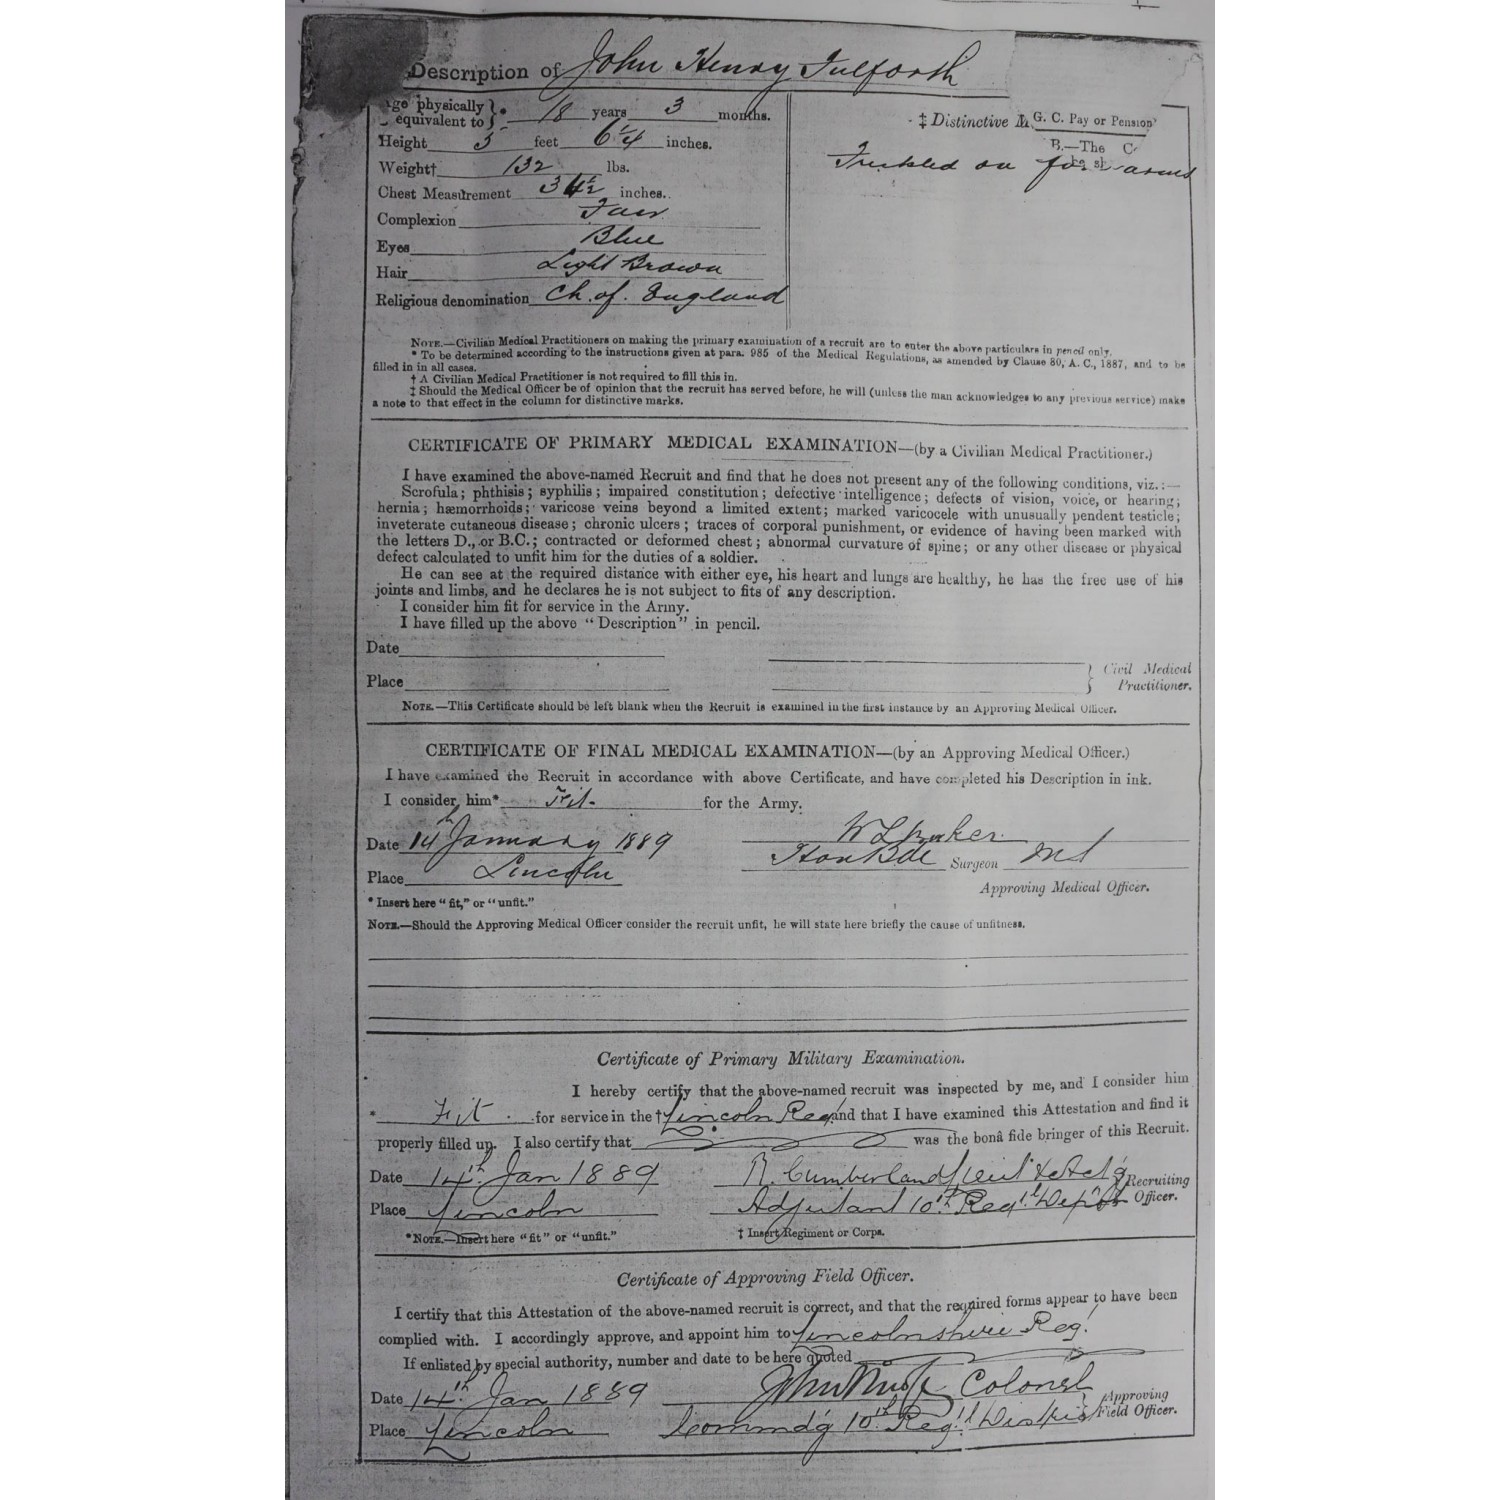 Description of John Henry Fulforth
Age physically equivalent to } * 18 years 3 months.
Height 5 feet 6 1/4 inches.
Weight† 132 lbs.
Chest Measurement 34 1/2 inches.
Complexion Fair
Eyes Blue
Hair Light Brown
Religious denomination Ch. of. England
‡ Distinctive
G. C. Pay or Pension
B.—The
Freckled on forearms
NOTE.—Civilian Medical Practitioners on making the primary examination of a recruit are to enter the above particulars in pencil only.
* To be determined according to the instructions given at para. 985 of the Medical Regulations, as amended by Clause 80, A. C., 1887, and to be
filled in in all cases.
† A Civilian Medical Practitioner is not required to fill this in.
‡ Should the Medical Officer be of opinion that the recruit has served before, he will (unless the man acknowledges to any previous service) make
a note to that effect in the column for distinctive marks.
CERTIFICATE OF PRIMARY MEDICAL EXAMINATION—(by a Civilian Medical Practitioner.)
I have examined the above-named Recruit and find that he does not present any of the following conditions, viz.:—
Scrofula; phthisis; syphilis; impaired constitution; defective intelligence; defects of vision, voice, or hearing;
hernia; hæmorrhoids; varicose veins beyond a limited extent; marked varicocele with unusually pendent testicle;
inveterate cutaneous disease; chronic ulcers; traces of corporal punishment, or evidence of having been marked with
the letters D., or B.C.; contracted or deformed chest; abnormal curvature of spine; or any other disease or physical
defect calculated to unfit him for the duties of a soldier.
He can see at the required distance with either eye, his heart and lungs are healthy, he has the free use of his
joints and limbs, and he declares he is not subject to fits of any description.
I consider him fit for service in the Army.
I have filled up the above "Description" in pencil.
Date
Place
} Civil Medical Practitioner.
NOTE.—This Certificate should be left blank when the Recruit is examined in the first instance by an Approving Medical Officer.
CERTIFICATE OF FINAL MEDICAL EXAMINATION—(by an Approving Medical Officer.)
I have examined the Recruit in accordance with above Certificate, and have completed his Description in ink.
I consider him* Fit for the Army.
Date 14th January 1889
Place Lincoln
Surgeon
Approving Medical Officer.
* Insert here "fit," or "unfit."
NOTE.—Should the Approving Medical Officer consider the recruit unfit, he will state here briefly the cause of unfitness.
Certificate of Primary Military Examination.
I hereby certify that the above-named recruit was inspected by me, and I consider him
* Fit for service in the † Lincoln Reg and that I have examined this Attestation and find it
properly filled up. I also certify that was the bonâ fide bringer of this Recruit.
Date 14th Jan 1889 R. Cumberland Lieut & Actg
Place Lincoln Adjutant 10th Regtl Depôt
Recruiting Officer.
*NOTE.—Insert here "fit" or "unfit."
† Insert Regiment or Corps.
Certificate of Approving Field Officer.
I certify that this Attestation of the above-named recruit is correct, and that the required forms appear to have been
complied with. I accordingly approve, and appoint him to Lincolnshire Reg.
If enlisted by special authority, number and date to be here quoted
Date 14th Jan 1889 John Colonel
Place Lincoln Commdg 10th Regtl District
} Approving Field Officer.